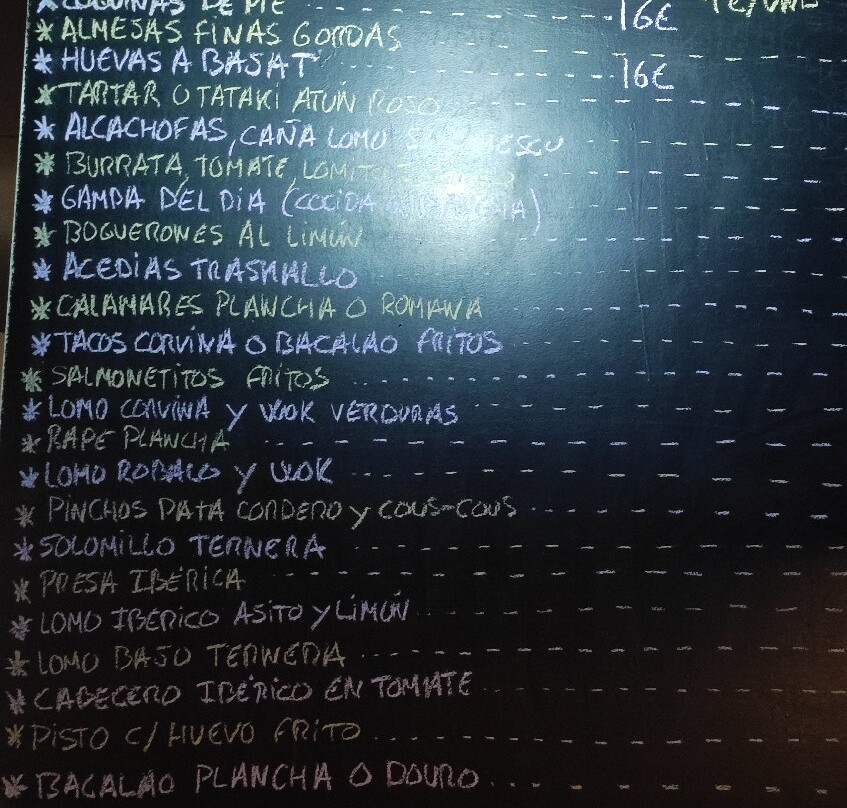 * COQUINAS DE PIE - - - 16€
* ALMEJAS FINAS GORDAS
* HUEVAS A BASAT - - - 16€
* TARTAR O TATAKI ATÚN ROJO
* ALCACHOFAS, CAÑA LOMO
* BURRATA, TOMATE,
* GAMBA DEL DIA (COCIDA
* BOQUERONES AL LIMÓN
* ACEDIAS TRASMALLO
* CALAMARES PLANCHA O ROMANA
* TACOS CORVINA O BACALAO FRITOS
* SALMONETITOS FRITOS
* LOMO CORVINA Y WOK VERDURAS
* RAPE PLANCHA
* LOMO ROBALO Y WOK
* PINCHOS PATA CORDERO Y COUS-COUS
* SOLOMILLO TERNERA
* PRESA IBÉRICA
* LOMO IBÉRICO ASITO Y LIMÓN
* LOMO BAJO TERNERA
* CABECERO IBÉRICO EN TOMATE
* PISTO C/ HUEVO FRITO
* BACALAO PLANCHA O DOURO